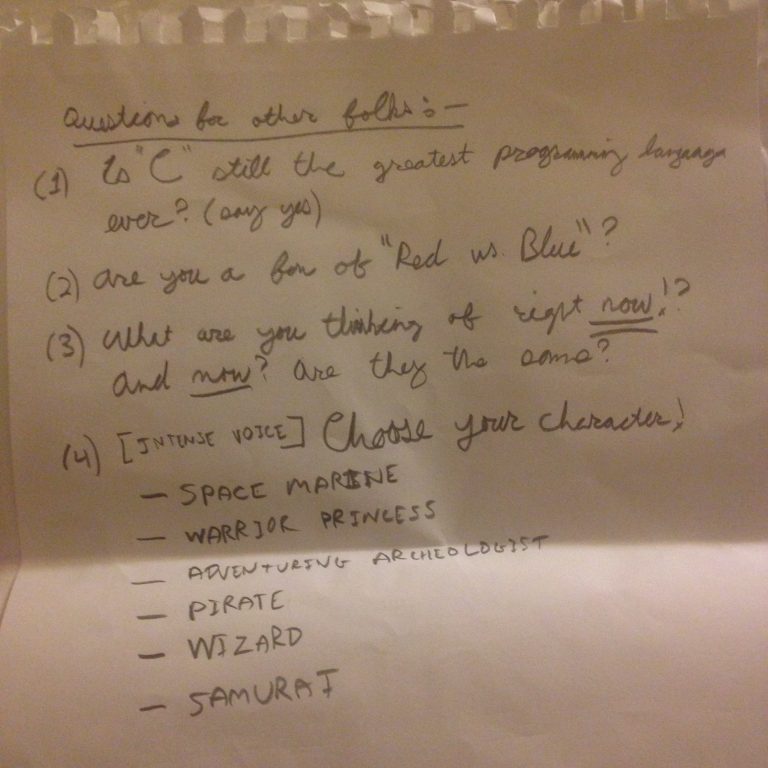 Questions for other folks:-
(1) Is "C" still the greatest programming language
ever? (say yes)
(2) Are you a fan of "Red vs. Blue"?
(3) What are you thinking of right now!?
And now? Are they the same?
(4) [INTENSE VOICE] Choose your character!
- SPACE MARINE
- WARRIOR PRINCESS
- ADVENTURING ARCHEOLOGIST
- PIRATE
- WIZARD
- SAMURAI